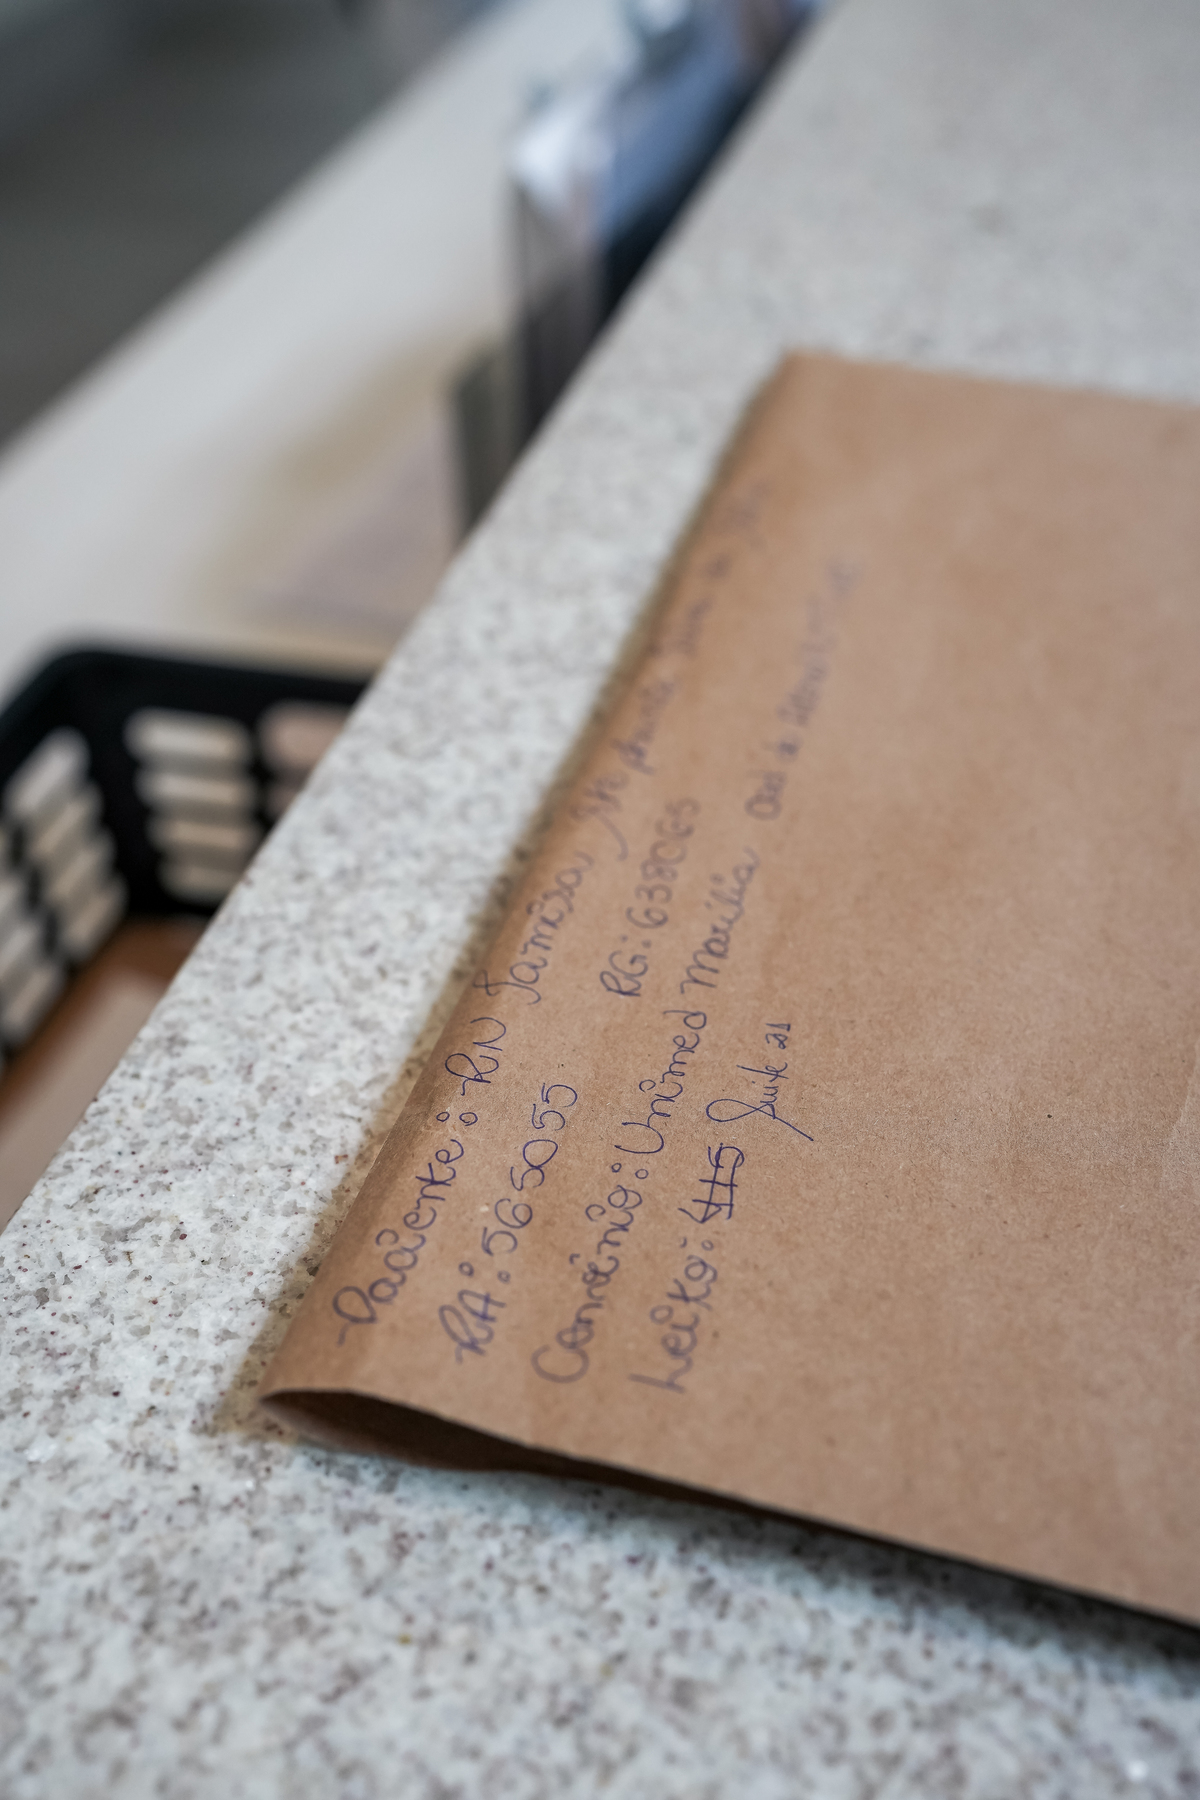 Paciente: RN Tamisa
RA: 565055 RG: 638065
Convênio: Unimed Marília
Leito: 415 Suite 21